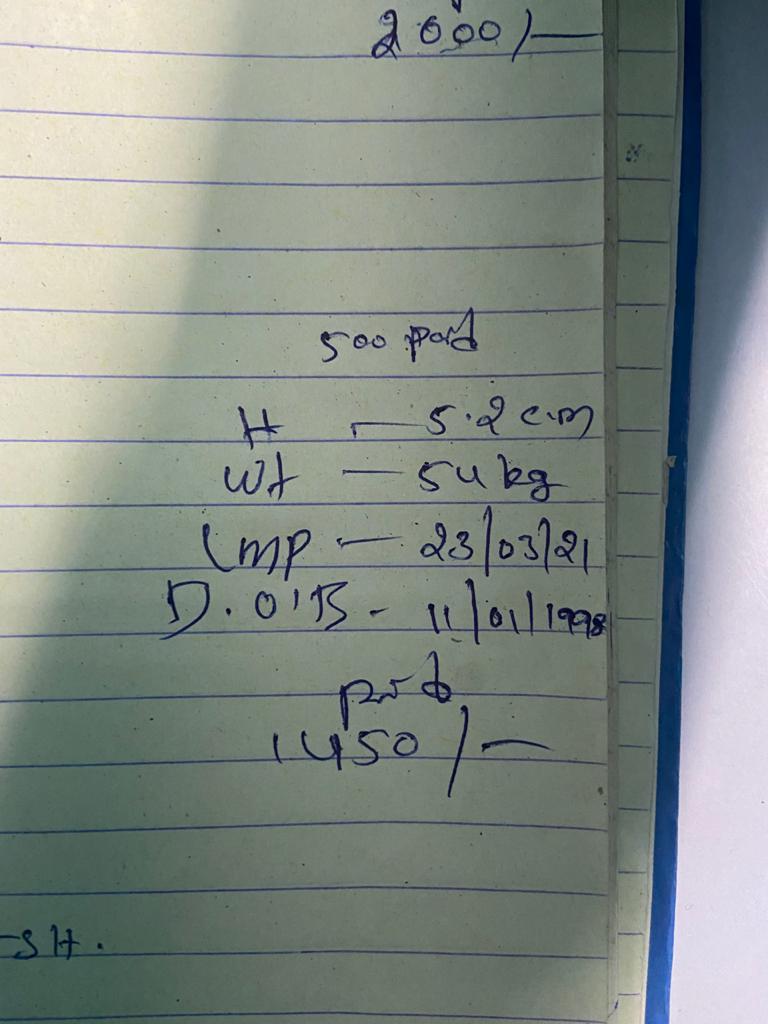 2000/—
500 paid
H — 5.2 c.m
Wt — 54 kg
Lmp — 23/03/21
D.O'B - 11/01/1998
paid
1450/—
-SH.